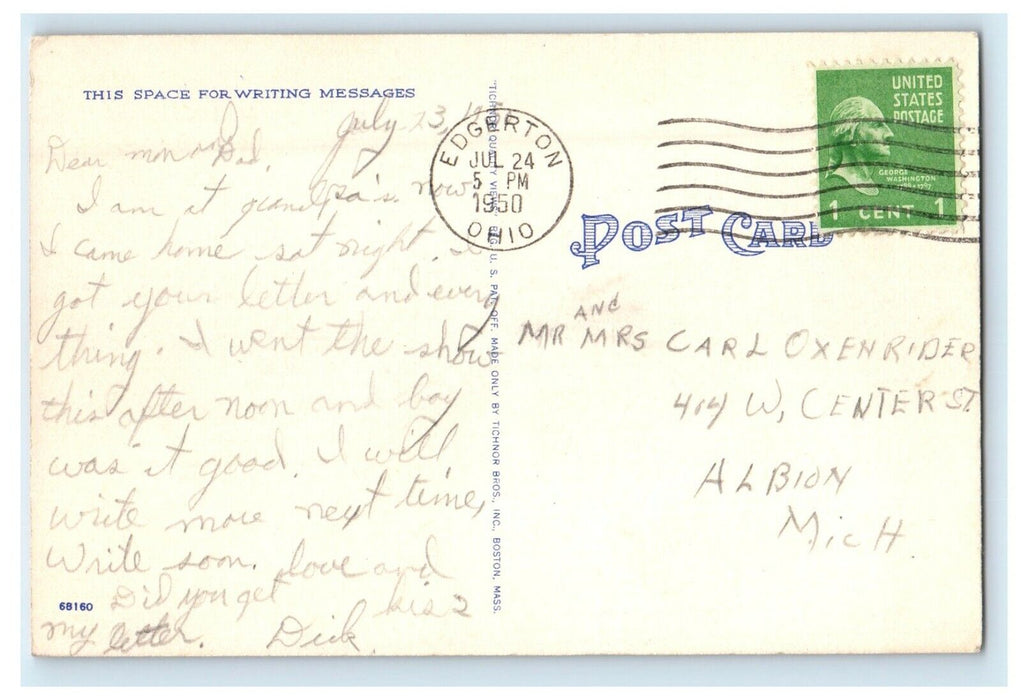 THIS SPACE FOR WRITING MESSAGES
July 23, 19
Dear mom and Dad,
I am at grandpa's now
I came home sat night. I
got your letter and every
thing. I went the show
this after noon and boy
was it good. I will
write more next time,
Write soon. Love and
kiss
Did you get
my letter. Dick
68160
"TICHNOR QUALITY VIEWS," REG. U. S. PAT. OFF. MADE ONLY BY TICHNOR BROS., INC., BOSTON, MASS.
EDGERTON
JUL 24
5 PM
1950
OHIO
UNITED
STATES
POSTAGE
GEORGE
WASHINGTON
1789-1797
1 CENT 1
POST CARD
MR AND MRS CARL OXENRIDER
414 W, CENTER ST.
ALBION
MICH.